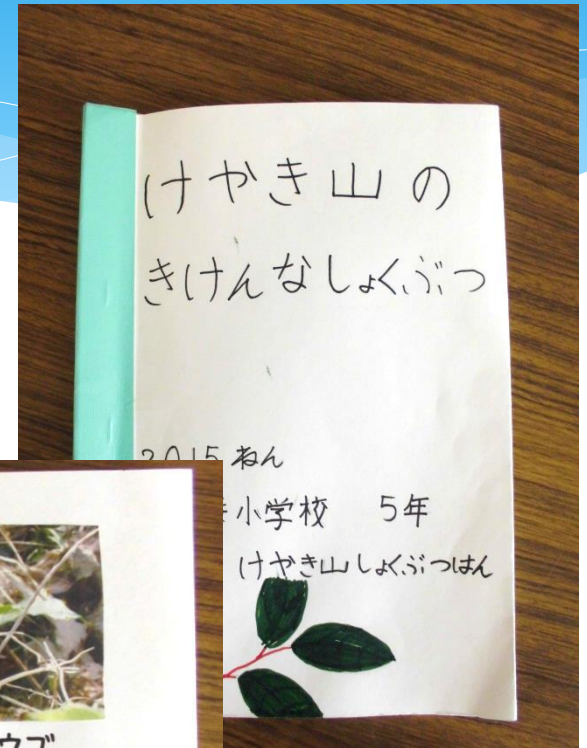 けやき山の
きけんなしょくぶつ
2015ねん
小学校 5年
けやき山しょくぶつはん
ウブ